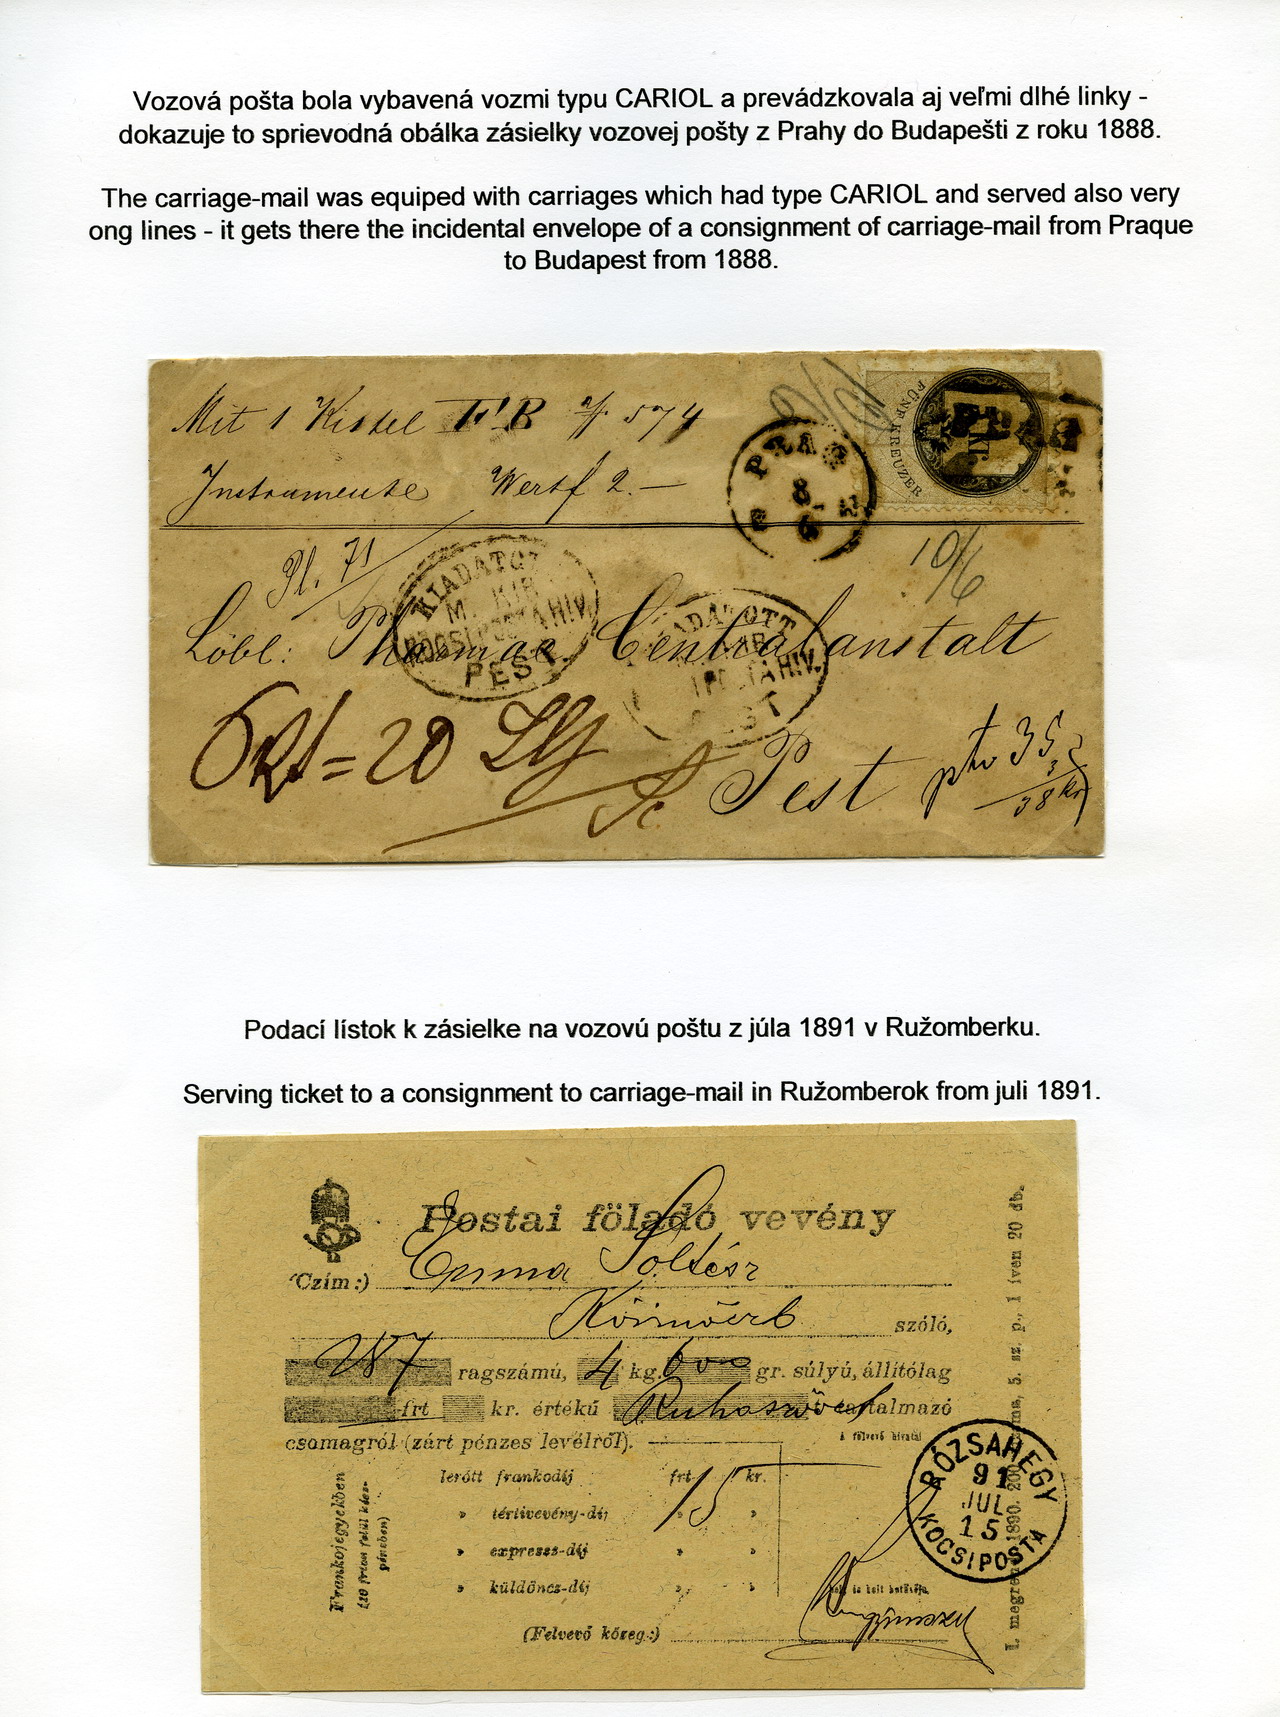 Vozová pošta bola vybavená vozmi typu CARIOL a prevádzkovala aj veľmi dlhé linky -
dokazuje to sprievodná obálka zásielky vozovej pošty z Prahy do Budapešti z roku 1888.
The carriage-mail was equiped with carriages which had type CARIOL and served also very
ong lines - it gets there the incidental envelope of a consignment of carriage-mail from Praque
to Budapest from 1888.
Mit 1 Kistel F.B. 574
Instrumente Wert f 2.—
FÜNF KREUZER
PRAG
8
6
10/6
10/6
Pl. 71
KIADATOTT
M. KIR.
KOCSIPOSTAHIV.
PEST
KIADATOTT
KIR.
POSTAHIV.
PEST
Löbl: Pharmac Centralanstalt
= 20
Pest
35
3
38 kr
Podací lístok k zásielke na vozovú poštu z júla 1891 v Ružomberku.
Serving ticket to a consignment to carriage-mail in Ružomberok from juli 1891.
Postai föladó vevény
Czím:) Emma Soltész
szóló,
287 ragszámú, 4 kg. 600 gr. súlyú, állítólag
frt kr. értékű tartalmazó
csomagról (zárt pénzes levélről).
A fölvevő hivatal
lerótt frankodíj frt 15 kr.
» tértivevény-díj » »
» expresss-díj » »
» küldöncz-díj » »
Frankojegyekben
(20 frton felül kész-
pénzben)
kelt bélyegzője
(Felvevő közeg:)
RÓZSAHEGY
91
JUL
15
KOCSIPOSTA
I. megrend. 1890. 200 5. sz. p., 1 íven 20 db.